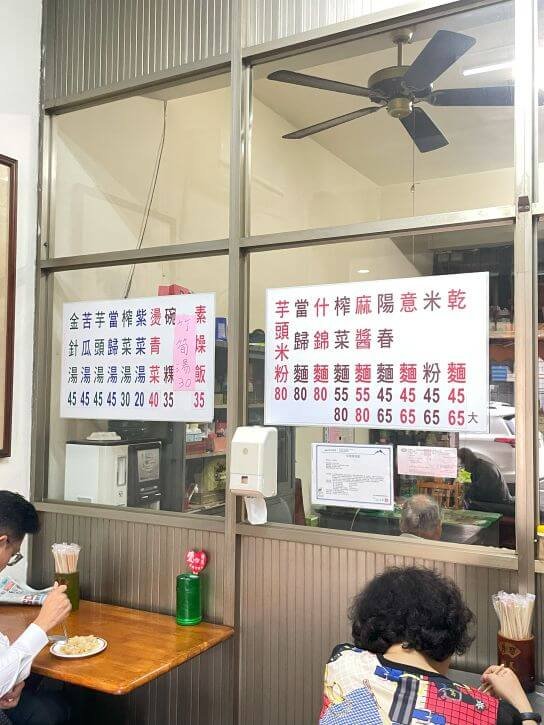 乾麵 45 65 大
米粉 45 65
意麵 45 65
陽春麵 45 65
麻醬麵 55 80
榨菜麵 55 80
什錦麵 80
當歸麵 80
芋頭米粉 80
素燥飯 35
竹筍湯 30
碗粿 35
燙青菜 40
紫菜湯 20
榨菜湯 30
當歸湯 45
芋頭湯 45
苦瓜湯 45
金針湯 45